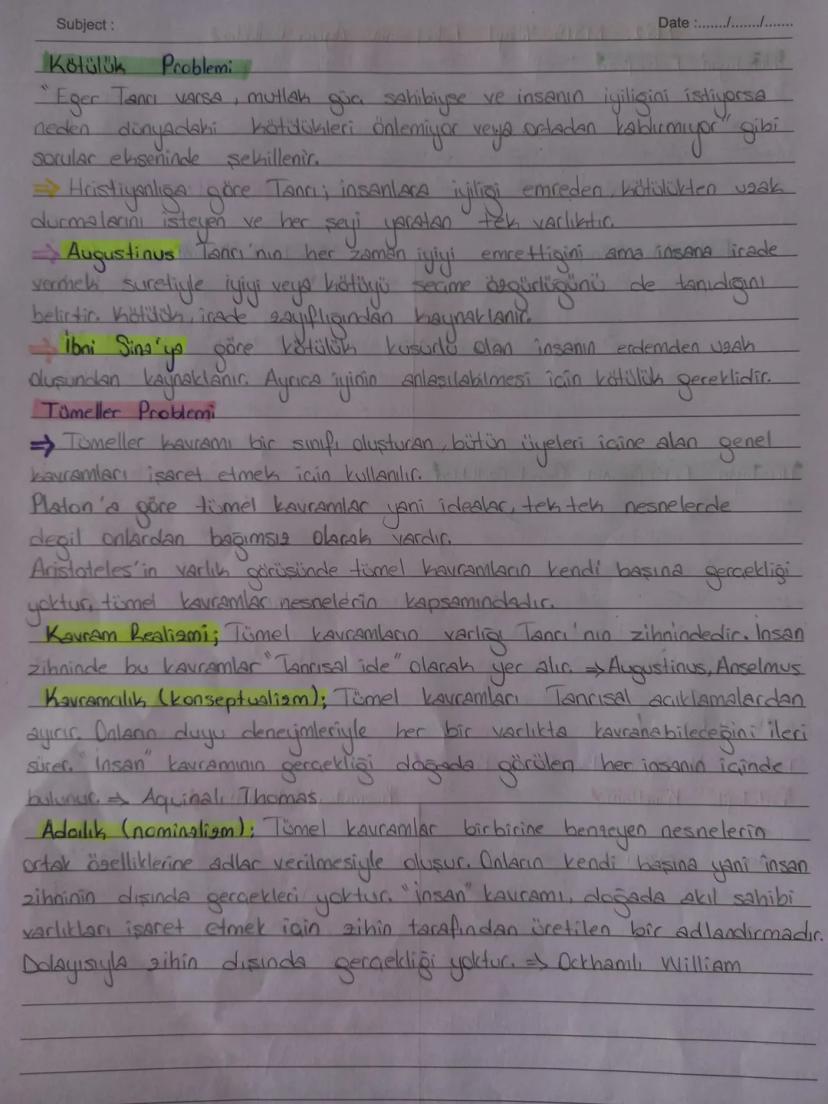 Subject :
Date :......./......./.......
Kötülük Problemi
"Eğer Tanrı varsa, mutlak güç sahibiyse ve insanın iyiliğini istiyorsa
neden dünyadaki kötülükleri önlemiyor veya ortadan kaldırmıyor" gibi
sorular ekseninde şekillenir.
⇒ Hristiyanlığa göre Tanrı; insanlara iyiliği emreden, kötülükten uzak
durmalarını isteyen ve her şeyi yaratan tek varlıktır.
⇒ Augustinus Tanrı'nın her zaman iyiyi emrettiğini ama insana irade
vermek suretiyle iyiyi veya kötüyü seçme özgürlüğünü de tanıdığını
belirtir. Kötülük, irade zayıflığından kaynaklanır.
⇒ İbni Sina'ya göre kötülük kusurlu olan insanın erdemden uzak
oluşundan kaynaklanır. Ayrıca iyinin anlaşılabilmesi için kötülük gereklidir.
Tümeller Problemi
⇒ Tümeller kavramı bir sınıfı oluşturan, bütün üyeleri içine alan genel
kavramları işaret etmek için kullanılır.
Platon'a göre tümel kavramlar yani idealar, tek tek nesnelerde
değil onlardan bağımsız olarak vardır.
Aristoteles'in varlık görüşünde tümel kavramların kendi başına gerçekliği
yoktur, tümel kavramlar nesnelerin kapsamındadır.
Kavram Realizmi; Tümel kavramların varlığı Tanrı'nın zihnindedir. İnsan
zihninde bu kavramlar "Tanrısal ide" olarak yer alır. ⇒ Augustinus, Anselmus
Kavramcılık (konseptualizm); Tümel kavramları Tanrısal açıklamalardan
ayırır. Onların duyu deneyimleriyle her bir varlıkta kavranabileceğini ileri
sürer. "İnsan" kavramının gerçekliği doğada görülen her insanın içinde
bulunur. ⇒ Aquinalı Thomas
Adcılık (nominalizm); Tümel kavramlar birbirine benzeyen nesnelerin
ortak özelliklerine adlar verilmesiyle oluşur. Onların kendi başına yani insan
zihninin dışında gerçekleri yoktur. "insan" kavramı, doğada akıl sahibi
varlıkları işaret etmek için zihin tarafından üretilen bir adlandırmadır.
Dolayısıyla zihin dışında gerçekliği yoktur. ⇒ Ockhamlı William